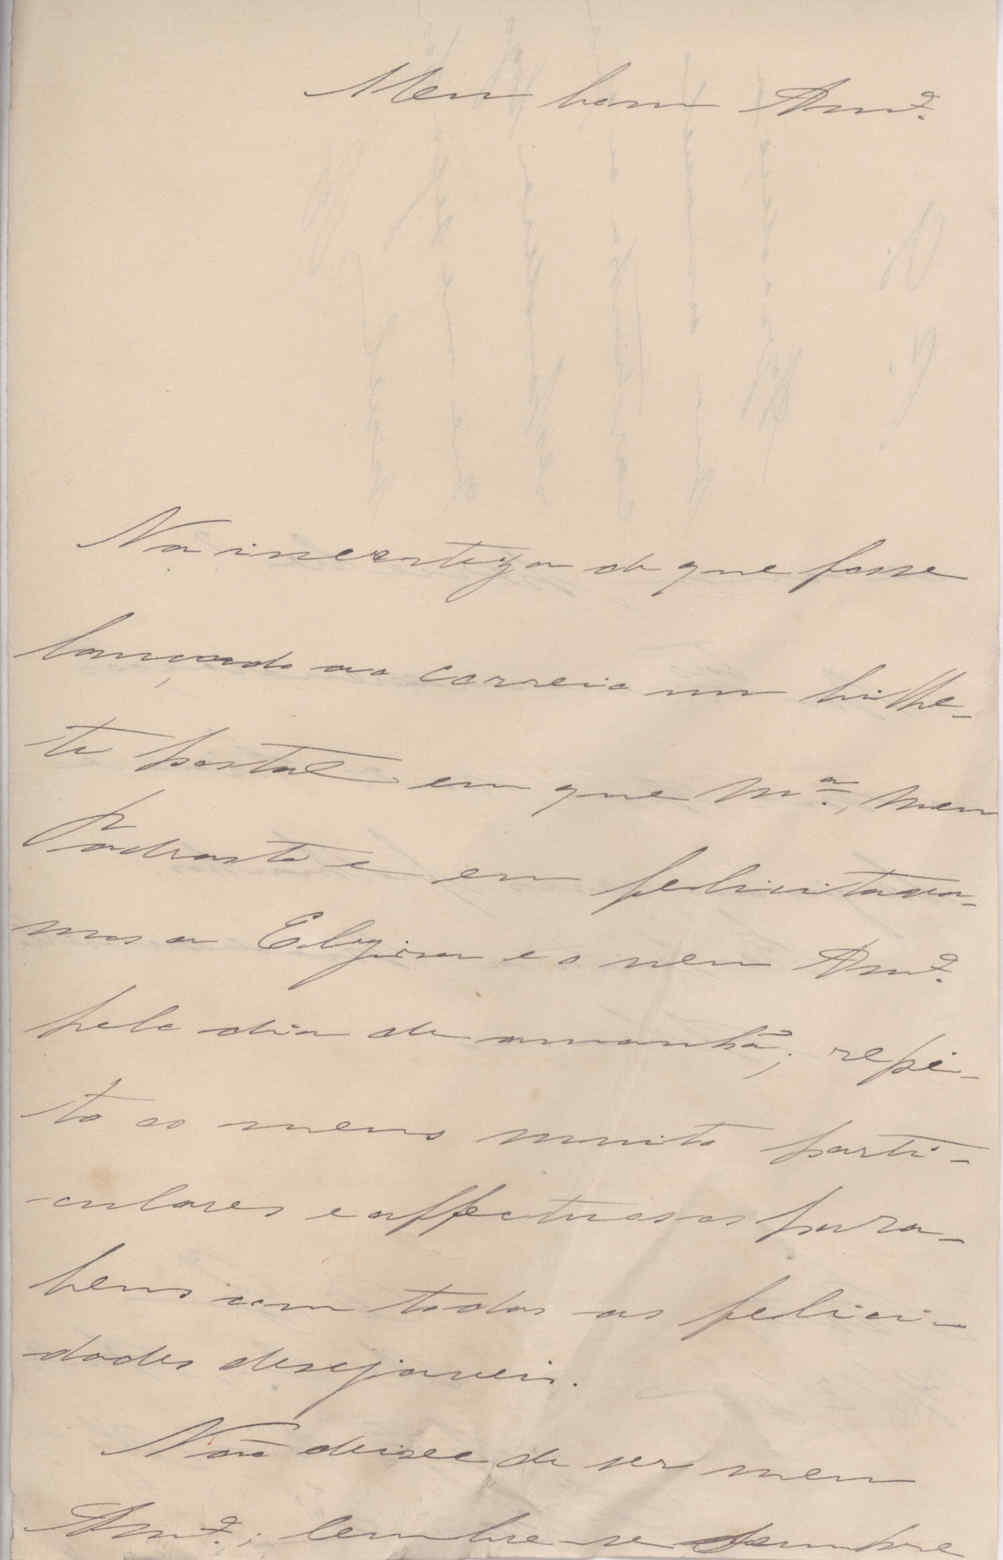 Meu bom Am.º
Na incerteza de que fosse
lançado ao correio um bilhe-
te postal em que M.ª, meu
Padrasto e eu felicitava-
mos a Elyira e o meu Am.º
pelo dia de amanhã; repi-
to os meus muito parti-
culares e affectuosos para-
bens com todas as felici-
dades desejaveis.
Não deixe de ser meu
Am.º; lembre-se sempre